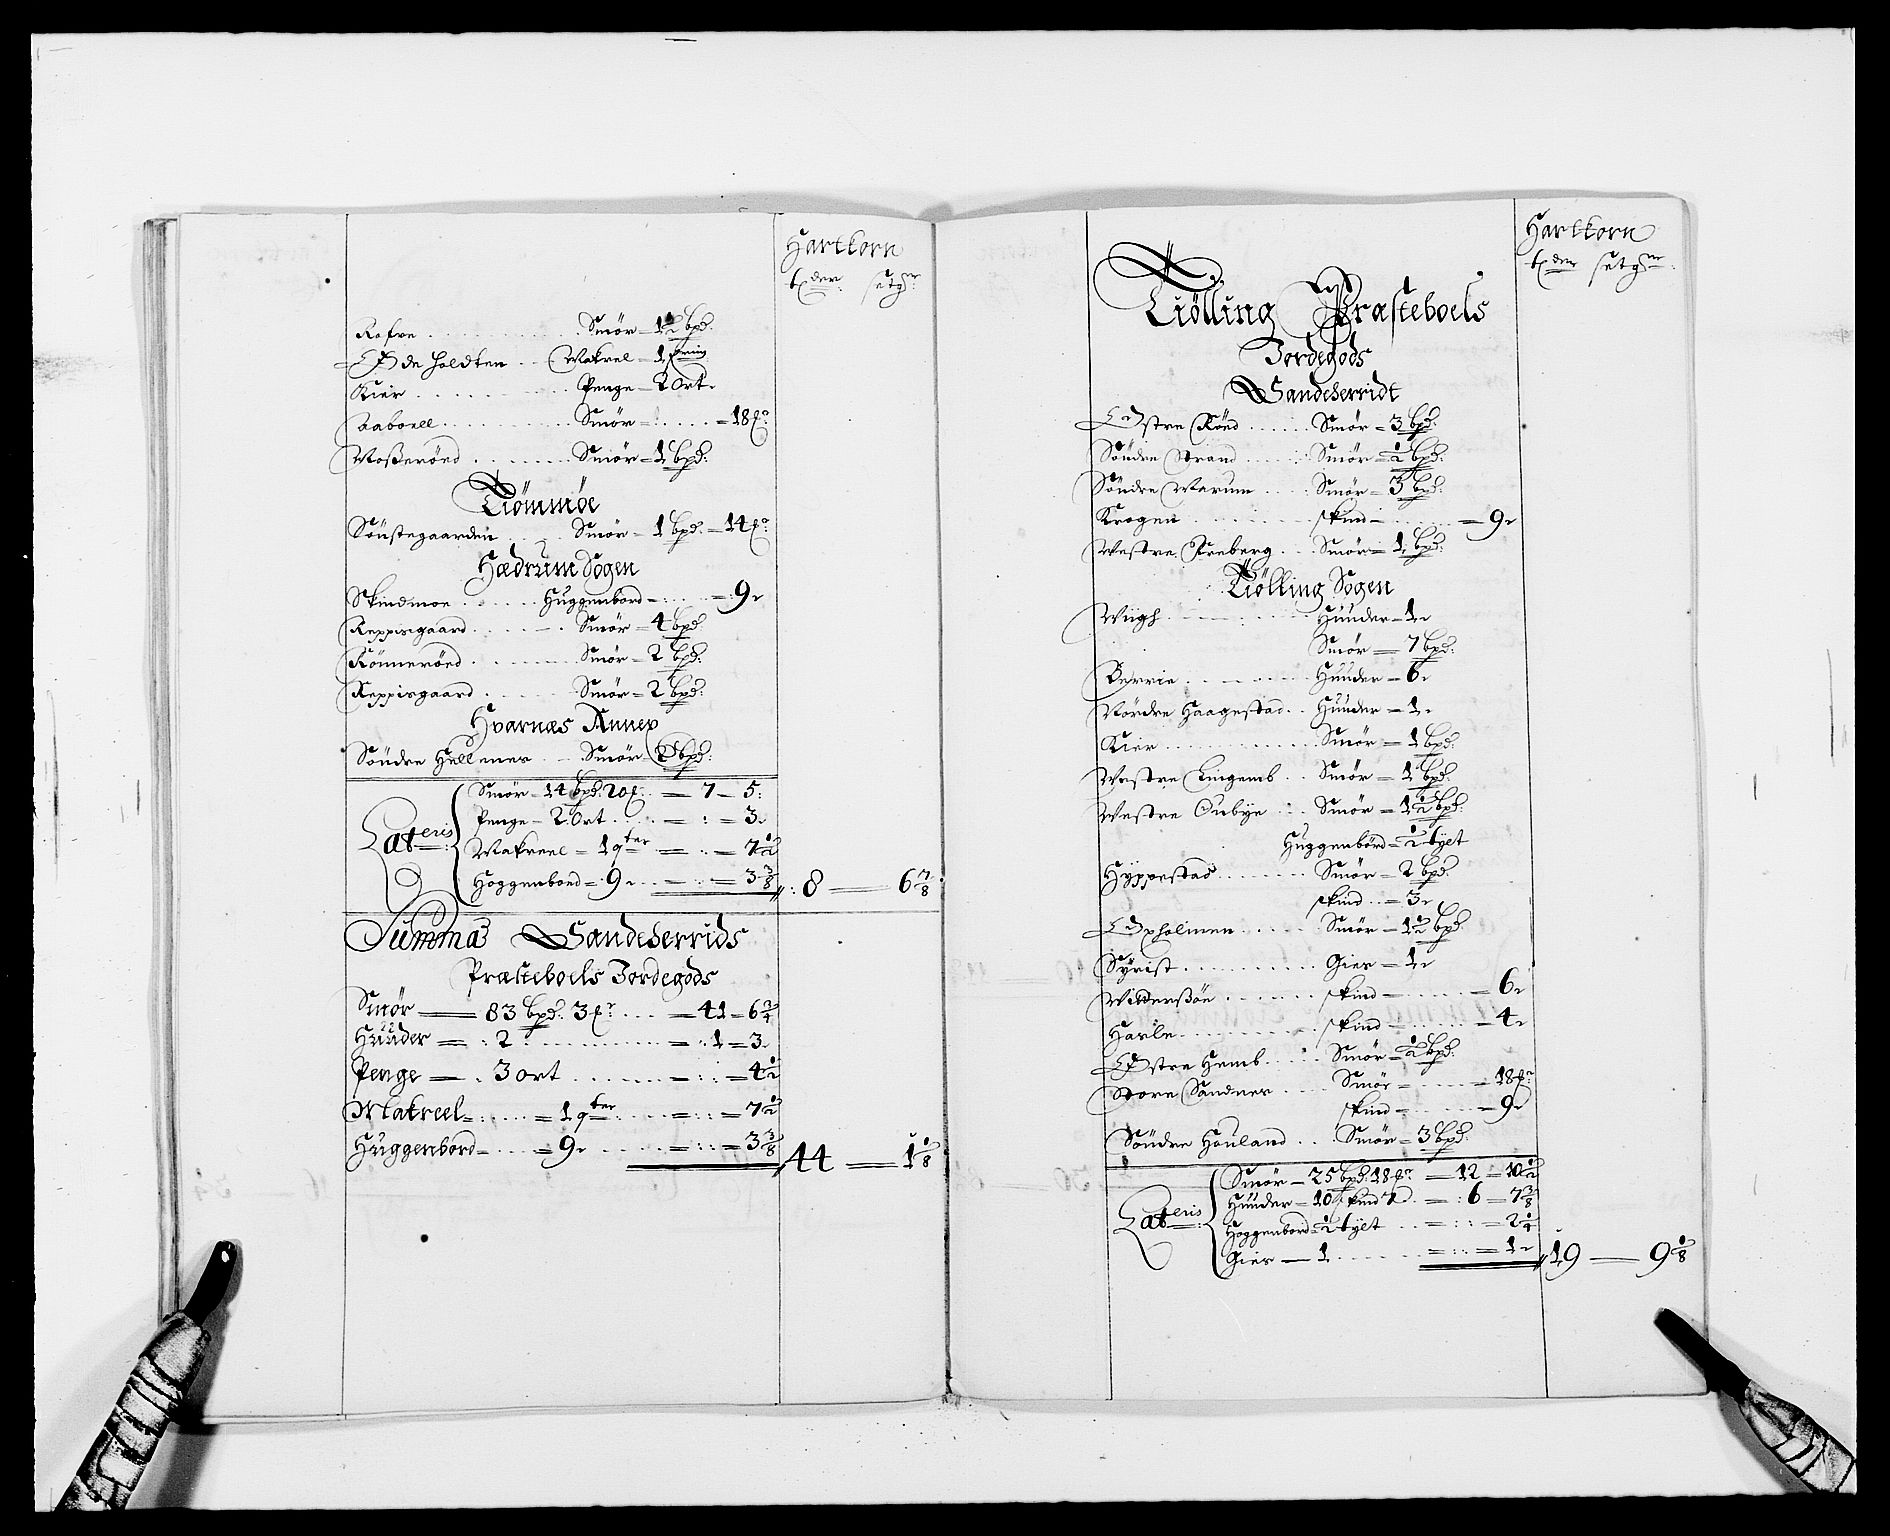 Hartkorn
t 𝔡er: setgr:
Rofve . . . . Smör = 1½ bpd:
Ødeholdten . . Makrel = 1 fring
Kier . . . . Penge = 2 Ort
Aaborll . . . . Smör = . . . . = 18 ℔r
Moßeröed . . . . Smör = 1 bpd:
Tiömmöe
Sönstegaarden . . . Smör = 1 bpd = 14 ℔r
Hædrum Sogen
Skindmoe . . . Huggenbord = . . . = 9
Reppisgaard . . . . Smör = 4 bpd:
Rönneröed . . . . Smör = 2 bpd:
Reppisgaard . . . . Smör = 2 bpd:
Hvarnæs Annex
Söndre Hellener . . Smör 2 bpd:
Lateris
Smör = 14 bpd: 20 ℔: = 7 = 5:
Penge = 2 Ort . . . = : = 3
Makreel = 1 qter = : = 7½
Hoggenbord = 9 . . = : = 3 3/8 8 = 6 7/8
Summa Sandeherrids
Præsteboels Jordegods
Smör = 83 bpd: 3 ℔r . . . = 41 = 6 3/4
Hüüder = : 2 : . . . . = : 1 = 3
Penge = . 3 ort . . . . = : = 4½
Makreel = : . . . = 1 qter . . . = : = 7½
Huggenbord = . . . = 9 . . . = : = 3 3/8 44 = 1 1/8
Hartkorn
tder setgr:
Tiölling Præsteboels
Jordegods
Sandeherridt
Østre Röed . . . . Smör = 3 bpd:
Söndre Strand . . . . Smör = ½ bpd:
Söndre Warum . . . Smör = 3 bpd:
Krogen . . . . skind = . . . = 9
Westre Freberg . . . Smör = 1 bpd:
Tiölling Sogen
Wiigh . . . . Hüuder = 1
Smör = 7 bpd:
Berrie . . . . Hüuder = 6
Nördre Haagestad . . Hüuder = 1
Kier . . . . Smör = 1 bpd:
Westre Lingemb . . Smör = 1 bpd:
Westre Onbye . . . Smör = 1½ bpd:
Huggenbord = ½ tylt
Hyppestad . . . . Smör = 2 bpd
skind . . = 3
Oxholmen . . . . Smör = 1½ bpd
Syrist . . . . Gier = 1
Witterßöe . . . . skind = . . . = 6
Harle . . . . skind = . . . = 4
Østre Hemb . . . Smör = ½ bpd:
Store Sandner . . . Smör = . . . = 18 ℔r
skind = . . . = 9
Söndre Houland . . . Smör = 3 bpd:
Lateris
Smör = 25 bpd: 18 ℔r = 12 = 10½
Hüuder = 10 skind 7 . = : 6 = 7 3/8
Hoggenbord = ½ tylt . . = : = 2 1/4
Gier = 1 . . . . = : = 1 19 = 9 1/8